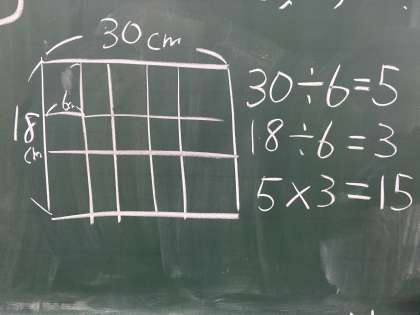 30cm
18cm
6cm
30÷6=5
18÷6=3
5×3=15